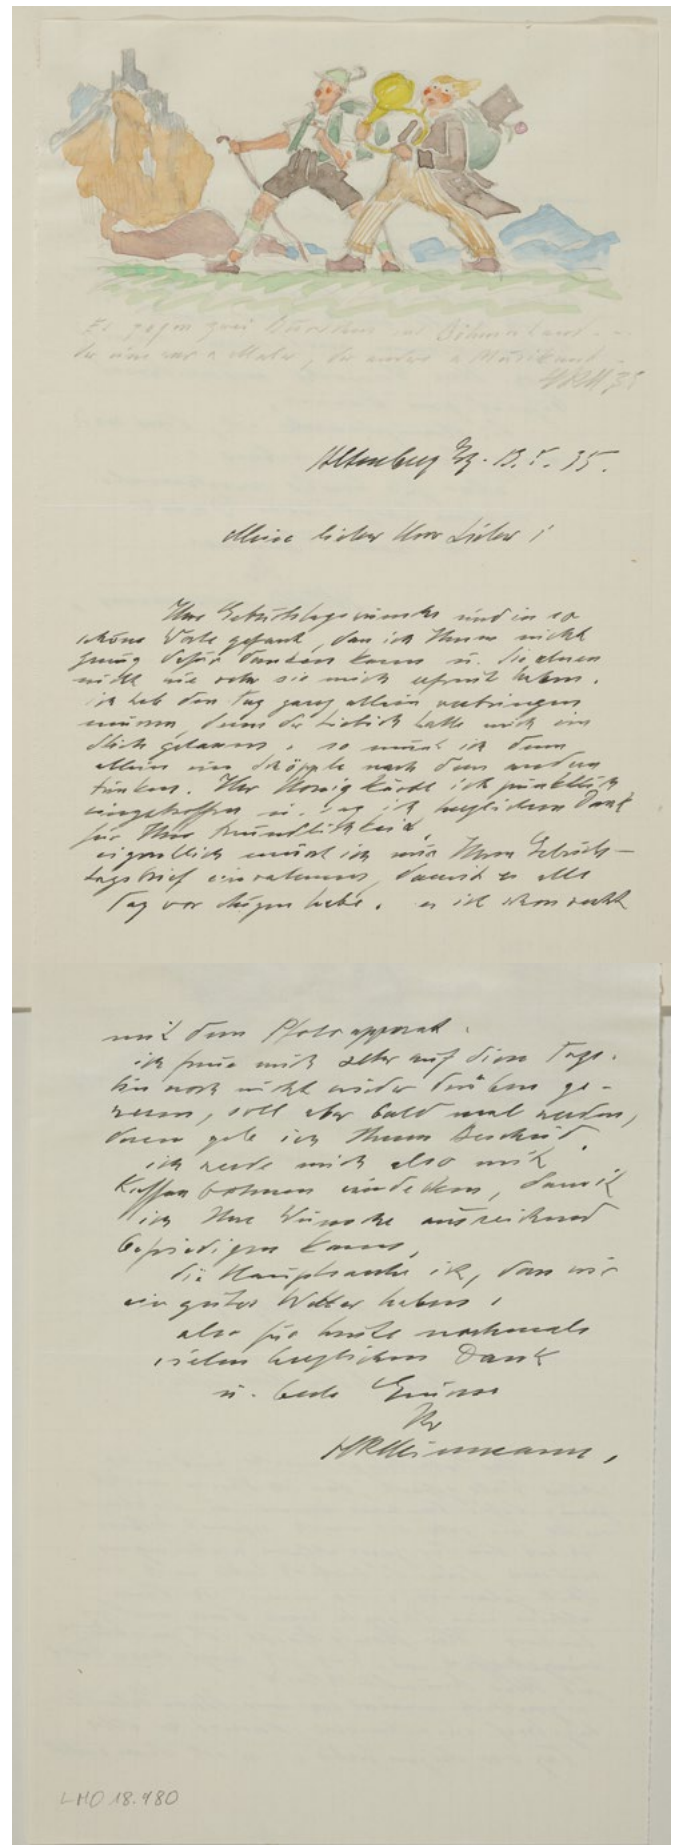 Es zogen zwei Burschen ins Böhmerland -
der eine war a Maler, der andre a Musikant -
35
Altenburg 13. V. 35.
Meine lieber Herr Lieber!
Ihre Geburtstagswünsche sind in so
schöne Worte gefasst, dass ich Ihnen nicht
genug dafür danken kann u. Sie ahnen
nicht wie sehr sie mich erfreut haben.
ich hab den Tag ganz allein verbringen
müssen, denn der hatte mich
. so musst ich denn
allein ein Schöpple nach dem andern
trinken. Ihr Honig ist pünktlich
eingetroffen u. sag ich herzlichen Dank
für Ihre Freundlichkeit.
eigentlich müsst ich mir Ihren Geburts-
tagsbrief einrahmen, damit es alle
Tag vor Augen habe. es ist schon recht
mit dem Photoapparat.
ich freue mich sehr auf diese Tage.
bin noch nicht wieder drüben ge-
wesen, soll aber bald mal werden,
dann gebe ich Ihnen Bescheid.
ich werde mich also mit
Kaffeebohnen eindecken, damit
ich Ihre Wünsche ausreichend
befriedigen kann.
die Hauptsache ist, dass wir
ein gutes Wetter haben.
also für heute nochmals
vielen herzlichen Dank
u. beste Grüsse
Ihr
LMO 18.480